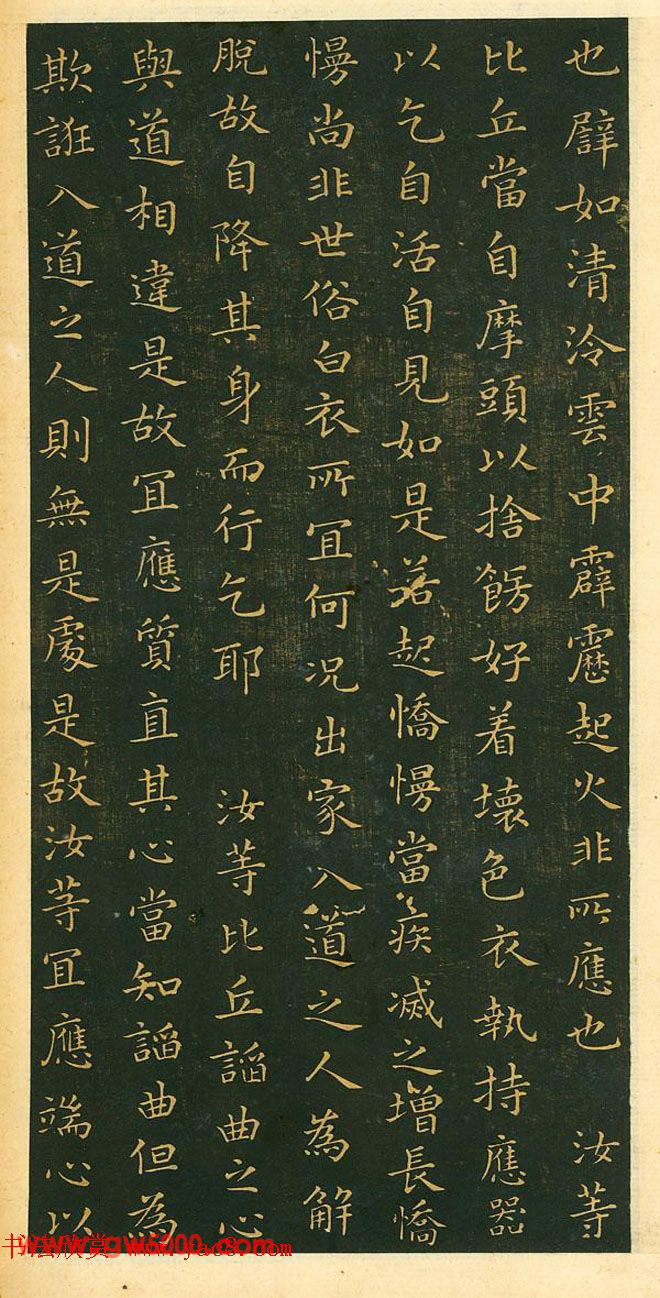 也譬如清泠雲中霹靂起火非所應也　汝等
比丘當自摩頭以捨餝好着壞色衣執持應器
以乞自活自見如是若起憍慢當疾滅之增長憍
慢尚非世俗白衣所冝何况出家入道之人為解
脫故自降其身而行乞耶　汝等比丘諂曲之心
與道相違是故冝應質直其心當知諂曲但為
欺誑入道之人則無是處是故汝等冝應端心以